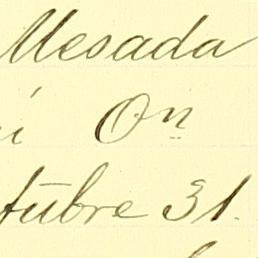 Mesada
í On
tubre 31.